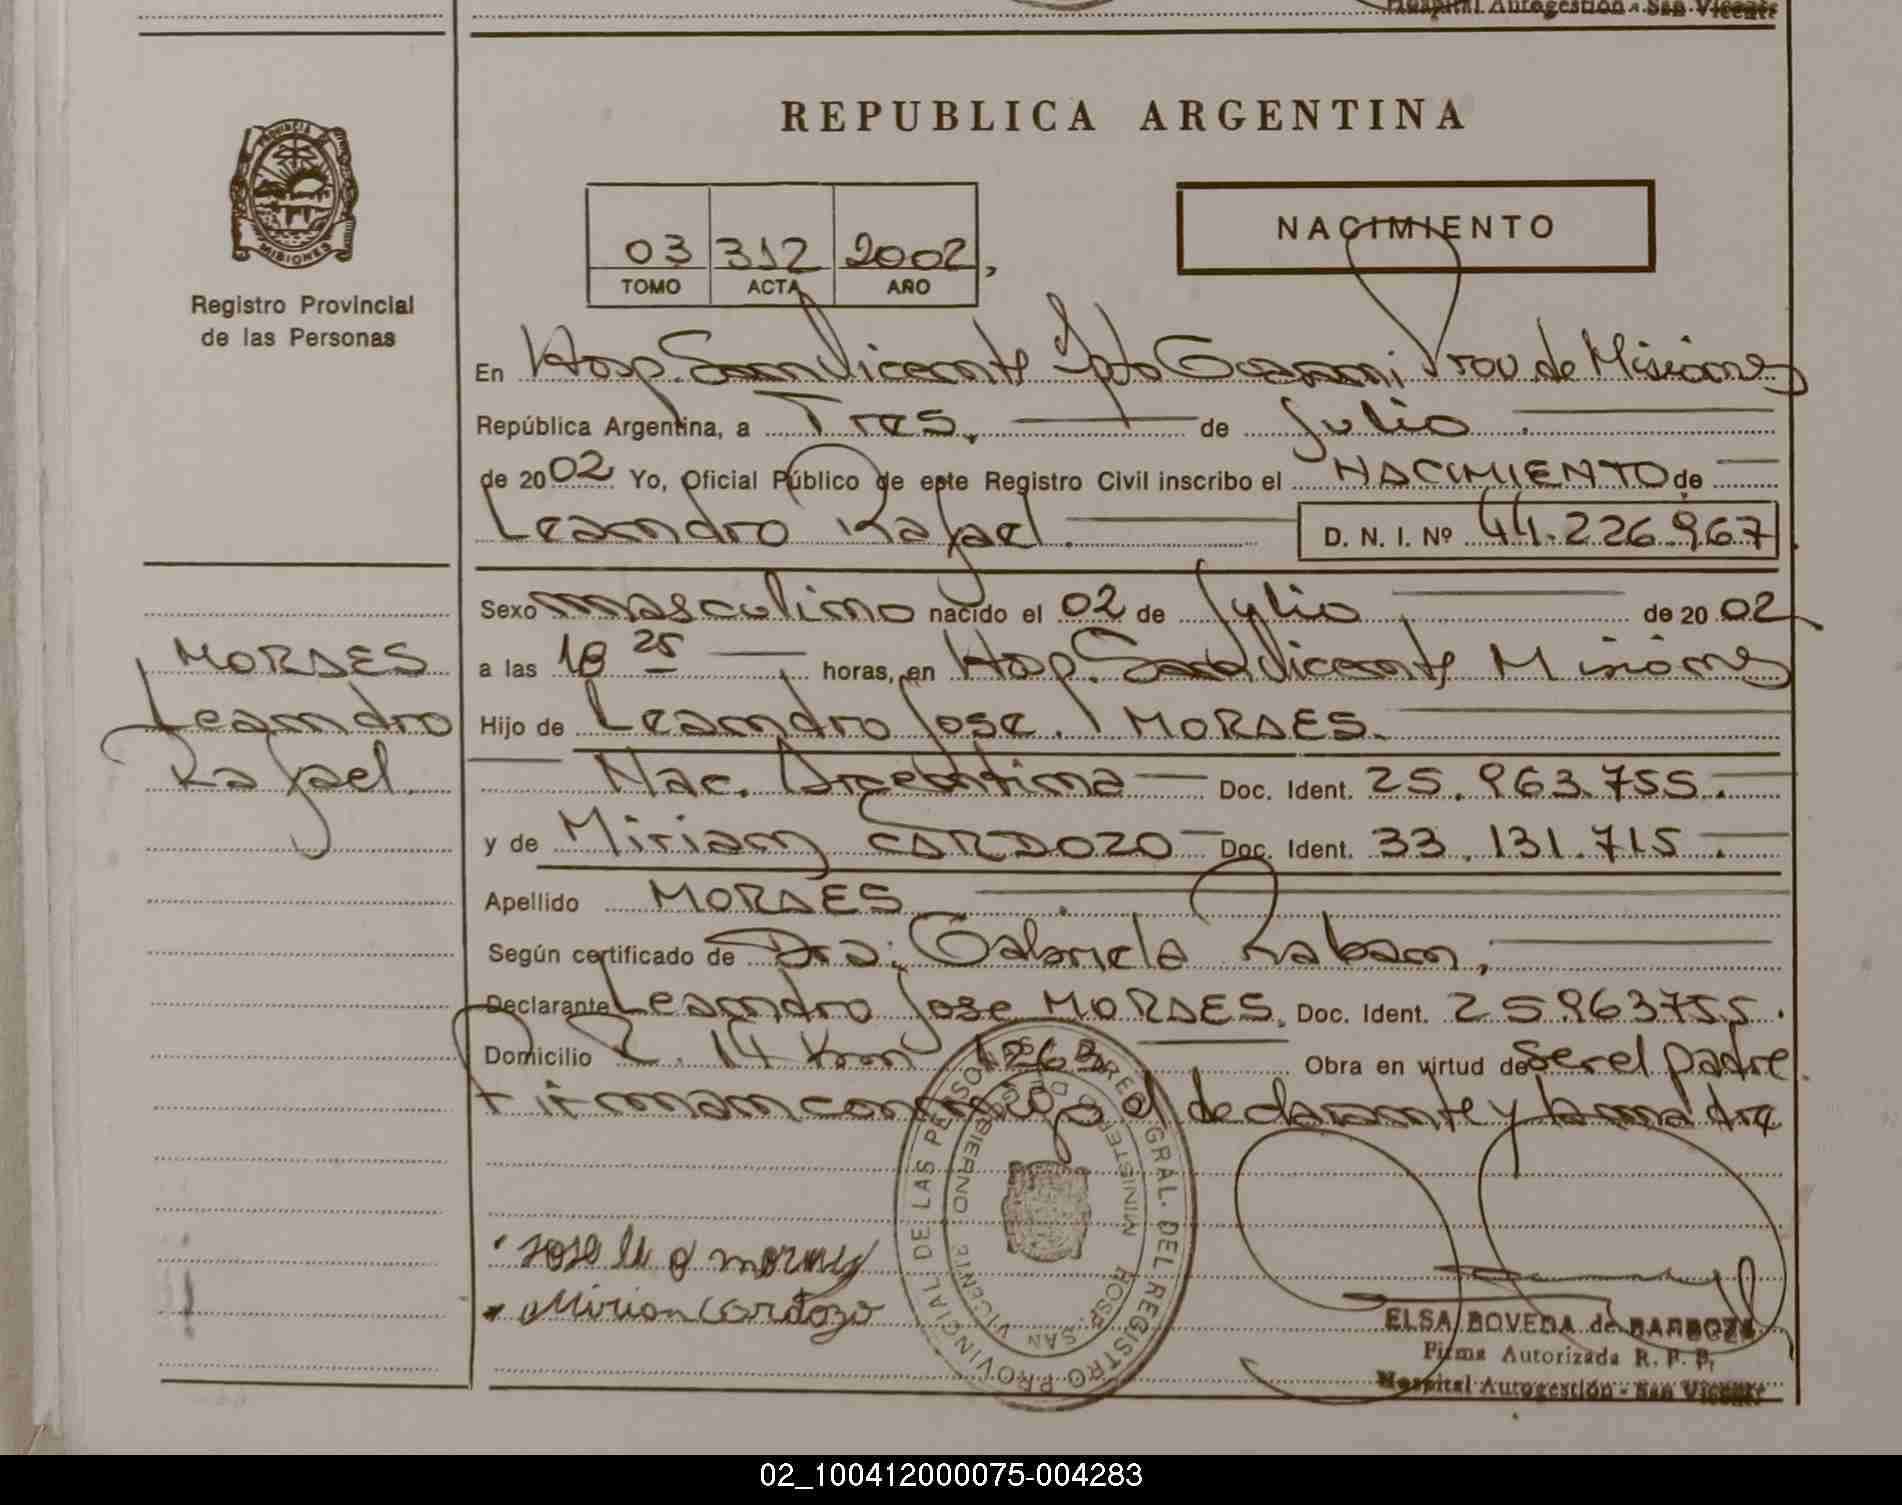 Hospital Autogestión - San Vicente
REPUBLICA ARGENTINA
PROVINCIA DE MISIONES
Registro Provincial
de las Personas
03 312 2002
TOMO ACTA AÑO
NACIMIENTO
En Hosp. San Vicente Dpto Guarani Prov de Misiones
República Argentina, a Tres. de Julio
de 2002 Yo, Oficial Público de este Registro Civil inscribo el NACIMIENTO de
Leandro Rafael. D. N. I. Nº 44.226.967
MORAES
Leandro
Rafael.
Sexo masculino nacido el 02 de Julio de 20 02
a las 18 25 horas, en Hosp. San Vicente Misiones
Hijo de Leandro Jose. MORAES.
Nac. Argentina Doc. Ident. 25.963.755.
y de Miriam CARDOZO Doc. Ident. 33.131.715.
Apellido MORAES
Según certificado de Dra: Gabriela Raban,
Declarante Leandro Jose MORAES. Doc. Ident. 25963755.
Domicilio R. 14 Km 1263 Obra en virtud de Ser el padre.
Firman conmigo el declarante y la madre
Mirian Cardozo
REG. GRAL. DEL REGISTRO PROVINCIAL DE LAS PERSONAS
MINISTERIO DE GOBIERNO
HOSP. SAN VICENTE
ELSA BOVEDA de BARBOZA
Firma Autorizada R. P. P.
Hospital Autogestión - San Vicente
02_100412000075-004283